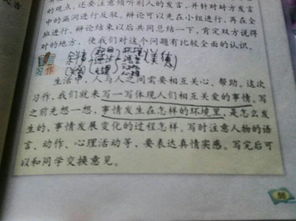 出,还要注意倾听别人的发言,并针对对方发言
中的漏洞进行反驳。辩论可以先在小组进行,再在全
班进行。辩论结束以后共同总结一下,肯定双方说得
对的地方,使我们对这个问题有比较全面的认识。
习作
生活中,人与人之间需要相互关心、帮助。这次
习作,我们就来写一写体现人们相互关爱的事情。写
之前先想一想,事情发生在怎样的环境里,是怎么发
生的,事情发展变化的过程怎样。写时注意人物的语
言、动作、心理活动等,要表达真情实感。写完后可
以和同学交换意见。